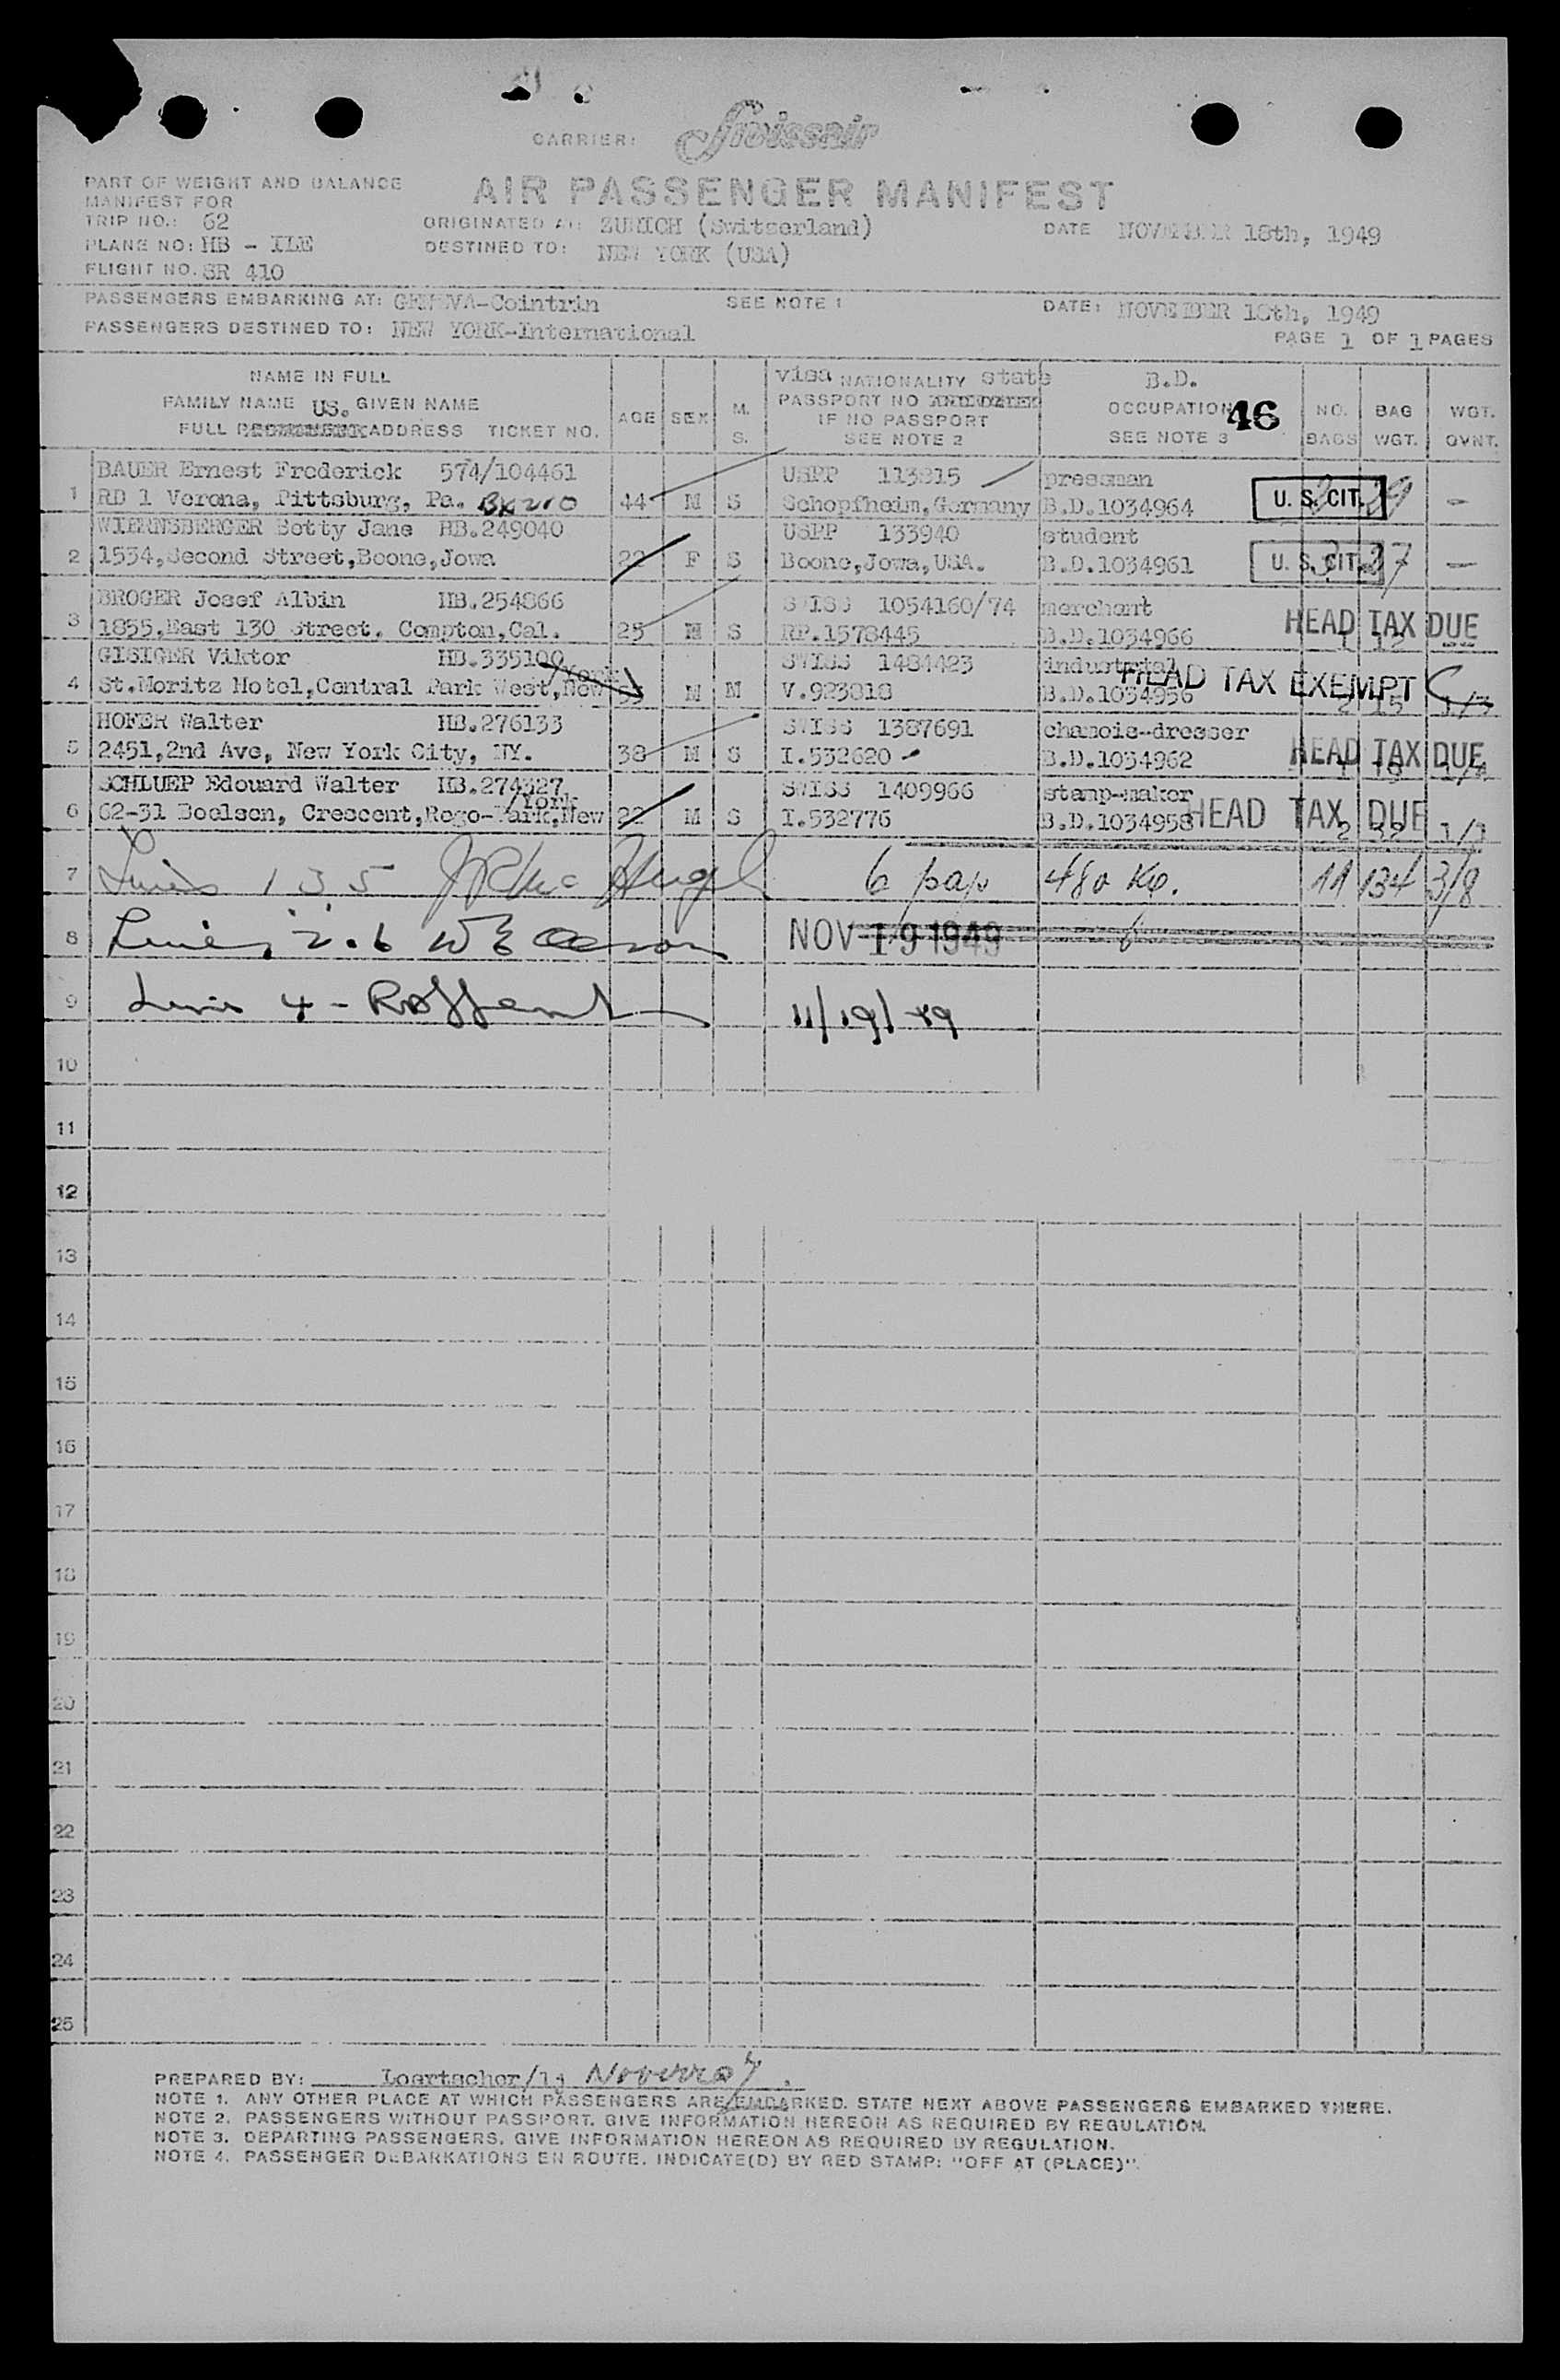 CARRIER: Swissair
PART OF WEIGHT AND BALANCE
MANIFEST FOR
AIR PASSENGER MANIFEST
TRIP NO.: 62 ORIGINATED AT: ZURICH (Switzerland) DATE NOVEMBER 18th, 1949
PLANE NO: HB - ILE DESTINED TO: NEW YORK (USA)
FLIGHT NO. SR 410
PASSENGERS EMBARKING AT: GENEVA-Cointrin SEE NOTE 1 DATE: NOVEMBER 18th, 1949
PASSENGERS DESTINED TO: NEW YORK-International
PAGE 1 OF 1 PAGES
NAME IN FULL visa NATIONALITY state B.D.
FAMILY NAME US. GIVEN NAME AGE SEX M. PASSPORT NO OCCUPATION 46 NO. BAG WGT.
IF NO PASSPORT
FULL ADDRESS TICKET NO. S. SEE NOTE 2 SEE NOTE 3 BAGS WGT. QVNT.
BAUER Ernest Frederick 574/104461 USPP 113815 pressman
1 RD 1 Verona, Pittsburg, Pa. 44 M S Schopfheim,Germany B.D.1034964 U. S. CIT. -
WIERNSBERGER Betty Jane HB.249040 USPP 133940 student
2 1534,Second Street,Boone,Jowa 22 F S Boone,Jowa,USA. B.D.1034961 U. S. CIT. 27 -
BROGER Josef Albin HB.254866 SWISS 1054160/74 merchant
3 1855,East 130 Street, Compton,Cal. 25 M S RP.1578445 B.D.1034966 HEAD TAX DUE
GISIGER Viktor HB.335100 SWISS 1484423 industrial
/York
4 St.Moritz Hotel,Central Park West,New M M V.923818 B.D.1034956 HEAD TAX EXEMPT 2 15 1/3
HOFER Walter HB.276133 SWISS 1387691 chamois-dresser
5 2451,2nd Ave, New York City, NY. 38 M S I.532620 B.D.1034962 HEAD TAX DUE
SCHLUEP Edouard Walter HB.274327 SWISS 1409966 stamp-maker
/York
6 62-31 Boelsen, Crescent,Rego-Park,New 22 M S I.532776 B.D.1034958 HEAD TAX DUE
7 Lines 1 3 5 6 pax 480 Kg. 11 134 3/8
8 Lines 2.6 NOV 19 1949 6
9 Lines 4 - 11/19/49
10
11
12
13
14
15
16
17
18
19
20
21
22
23
24
25
PREPARED BY:
NOTE 1. ANY OTHER PLACE AT WHICH PASSENGERS ARE EMBARKED. STATE NEXT ABOVE PASSENGERS EMBARKED THERE.
NOTE 2. PASSENGERS WITHOUT PASSPORT. GIVE INFORMATION HEREON AS REQUIRED BY REGULATION.
NOTE 3. DEPARTING PASSENGERS. GIVE INFORMATION HEREON AS REQUIRED BY REGULATION.
NOTE 4. PASSENGER DEBARKATIONS EN ROUTE. INDICATE(D) BY RED STAMP: "OFF AT (PLACE)".